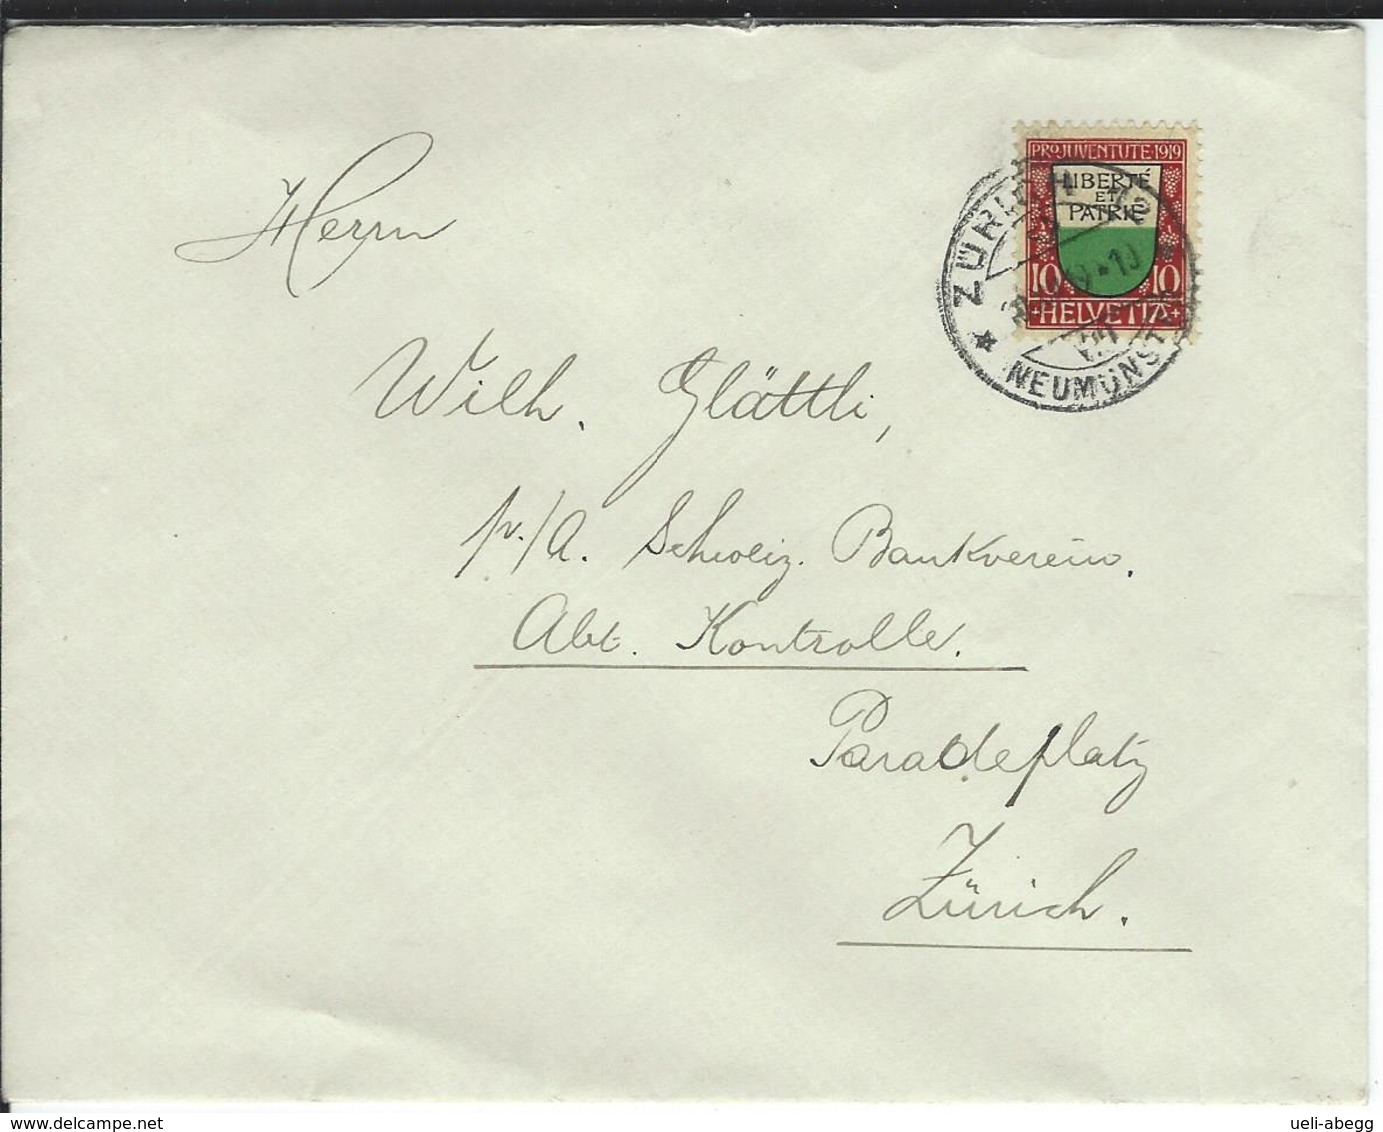 PRO JUVENTUTE·1919
LIBERTÉ
ET
PATRIE
10 10
+HELVETIA+
ZÜRICH
NEUMÜNST
Herrn
Wilh. Glättli,
pr./A. Schweiz. Bankverein.
Abt. Kontrolle.
Paradeplatz
Zürich.
www.delcampe.net
ueli-abegg